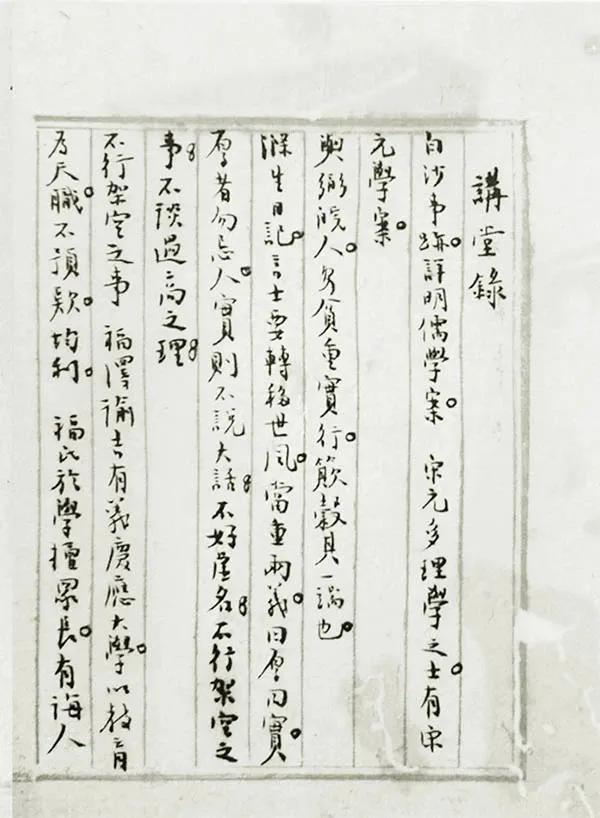 講堂錄
白沙事跡。詳明儒學案。 宋元多理學之士。有宋
元學案。
與弼皖人。安貧重實行。簸穀其一端也。
滌生日記。言士要轉移世風。當重兩義。曰厚曰實。
厚者勿忌人。實則不說大話。不好虛名。不行架空之
事。不談過高之理。
不行架空之事 福澤諭吉有義慶應大學。以教育
為天職。不預款。均利。 福氏於學擅眾長。有誨人